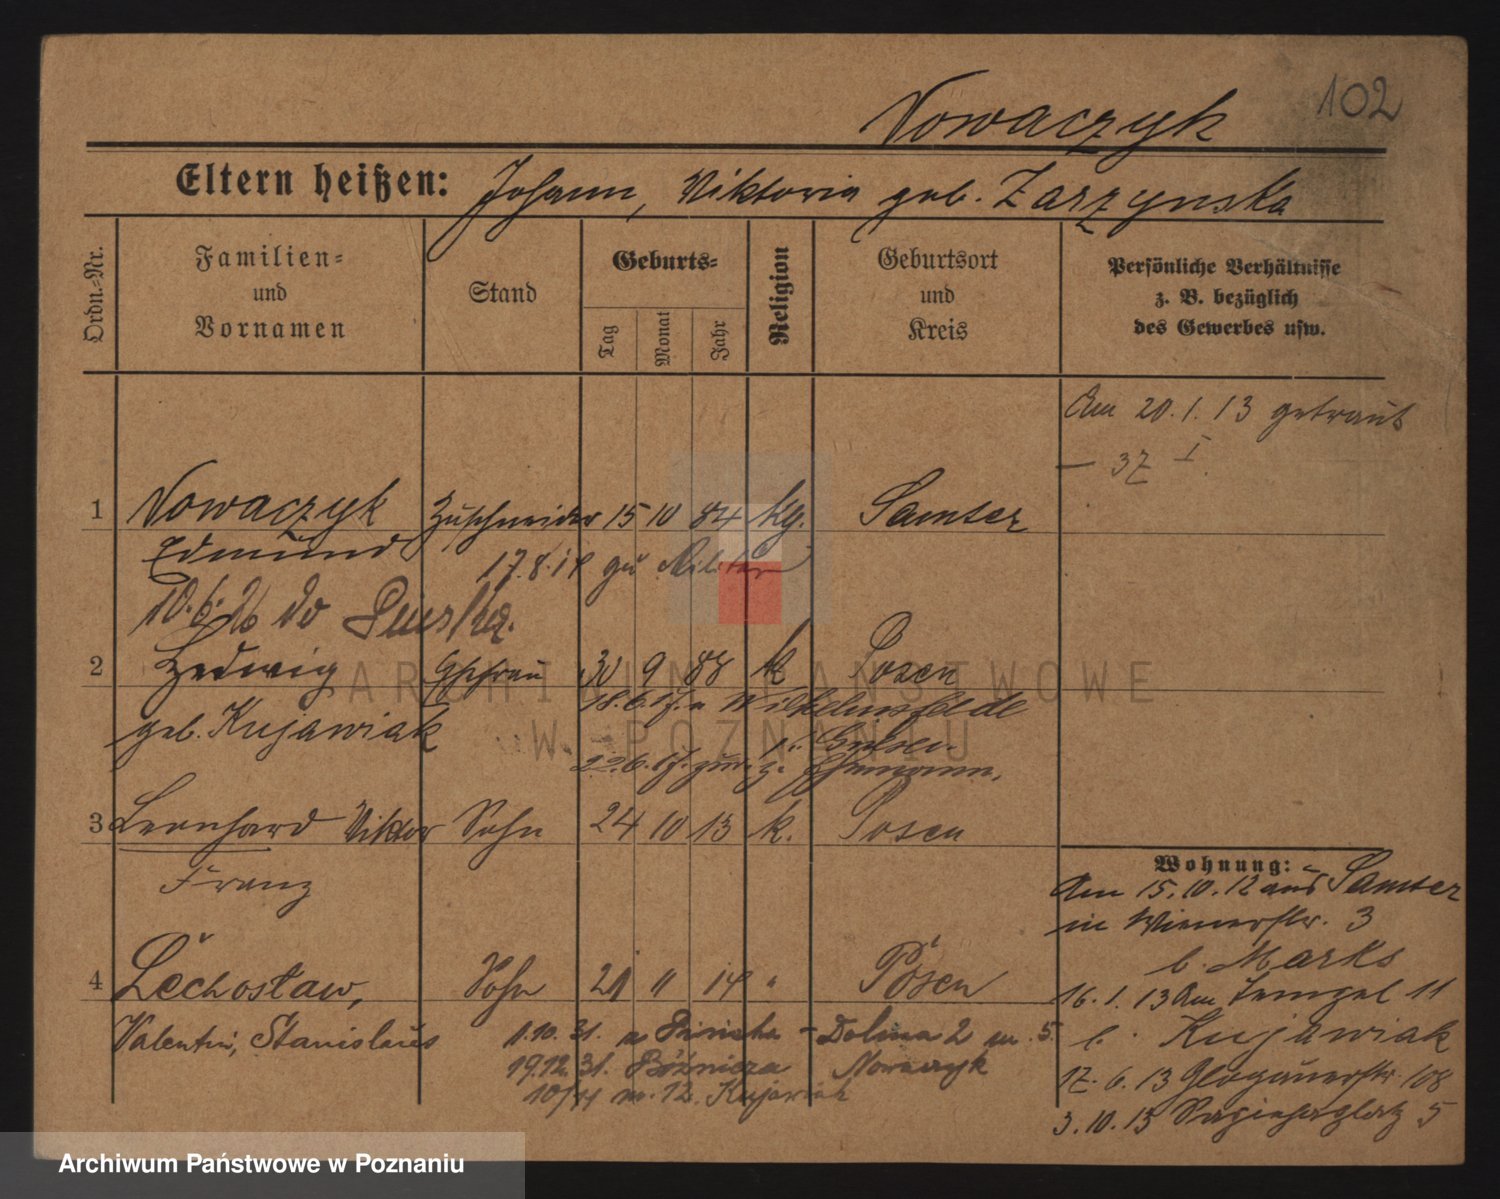 102
Nowaczyk
Eltern heißen: Johann, Viktoria geb. Zarzynska
Ordn.-Nr.
Familien- und Vornamen
Stand
Geburts-
Tag
Monat
Jahr
Religion
Geburtsort und Kreis
Persönliche Verhältnisse
z. B. bezüglich
des Gewerbes usw.
Am 20.1.13 getraut
— 37 I.
1 Nowaczyk Zuschneider 15 10 84 kg. Samter
Edmund 17.8.14 zu Militär
10.6.26 do
2 Hedwig Ehefrau 30 9 88 k Posen
geb. Kujawiak 18.6.17. n Wilhelmsfelde
22.6.17. zur. z. Ehemann.
3 Leonhard Viktor Sohn 24 10 13 k. Posen
Franz
4 Lechosław, Sohn 21 " 14 " Posen
Valentin, Stanislaus
1.10.31. - Dolina 2 m. 5.
19.12.31. Bóżnicza Nowaczyk
10/11 m. 12. Kujawiak
Wohnung:
Am 15.10.12 aus Samter
in Wienerstr. 3
b. Marks
16.1.13 Am Tempel 11
b. Kujawiak
17.6.13 Glogauerstr. 108
3.10.13 Sapiehaplatz 5
ARCHIWUM PAŃSTWOWE
W POZNANIU
Archiwum Państwowe w Poznaniu